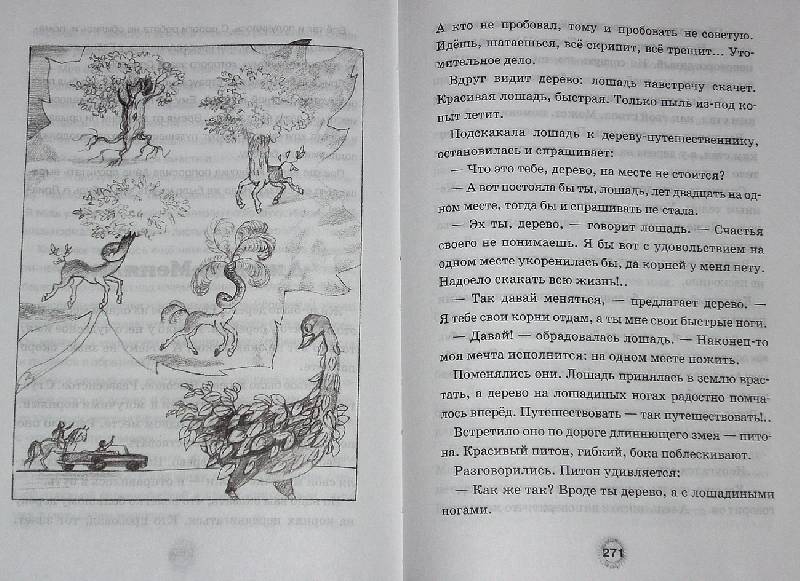 А кто не пробовал, тому и пробовать не советую.
Идёшь, шатаешься, всё скрипит, всё трещит... Уто-
мительное дело.
Вдруг видит дерево: лошадь навстречу скачет.
Красивая лошадь, быстрая. Только пыль из-под ко-
пыт летит.
Подскакала лошадь к дереву-путешественнику,
остановилась и спрашивает:
— Что это тебе, дерево, на месте не стоится?
— А вот постояла бы ты, лошадь, лет двадцать на од-
ном месте, тогда бы и спрашивать не стала.
— Эх ты, дерево, — говорит лошадь. — Счастья
своего не понимаешь. Я бы вот с удовольствием на
одном месте укоренилась бы, да корней у меня нету.
Надоело скакать всю жизнь!..
— Так давай меняться, — предлагает дерево. —
Я тебе свои корни отдам, а ты мне свои быстрые ноги.
— Давай! — обрадовалась лошадь. — Наконец-то
моя мечта исполнится: на одном месте пожить.
Поменялись они. Лошадь принялась в землю врас-
тать, а дерево на лошадиных ногах радостно помча-
лось вперёд. Путешествовать — так путешествовать!..
Встретило оно по дороге длиннющего змея — пито-
на. Красивый питон, гибкий, бока поблескивают.
Разговорились. Питон удивляется:
— Как же так? Вроде ты дерево, а с лошадиными
ногами.
271